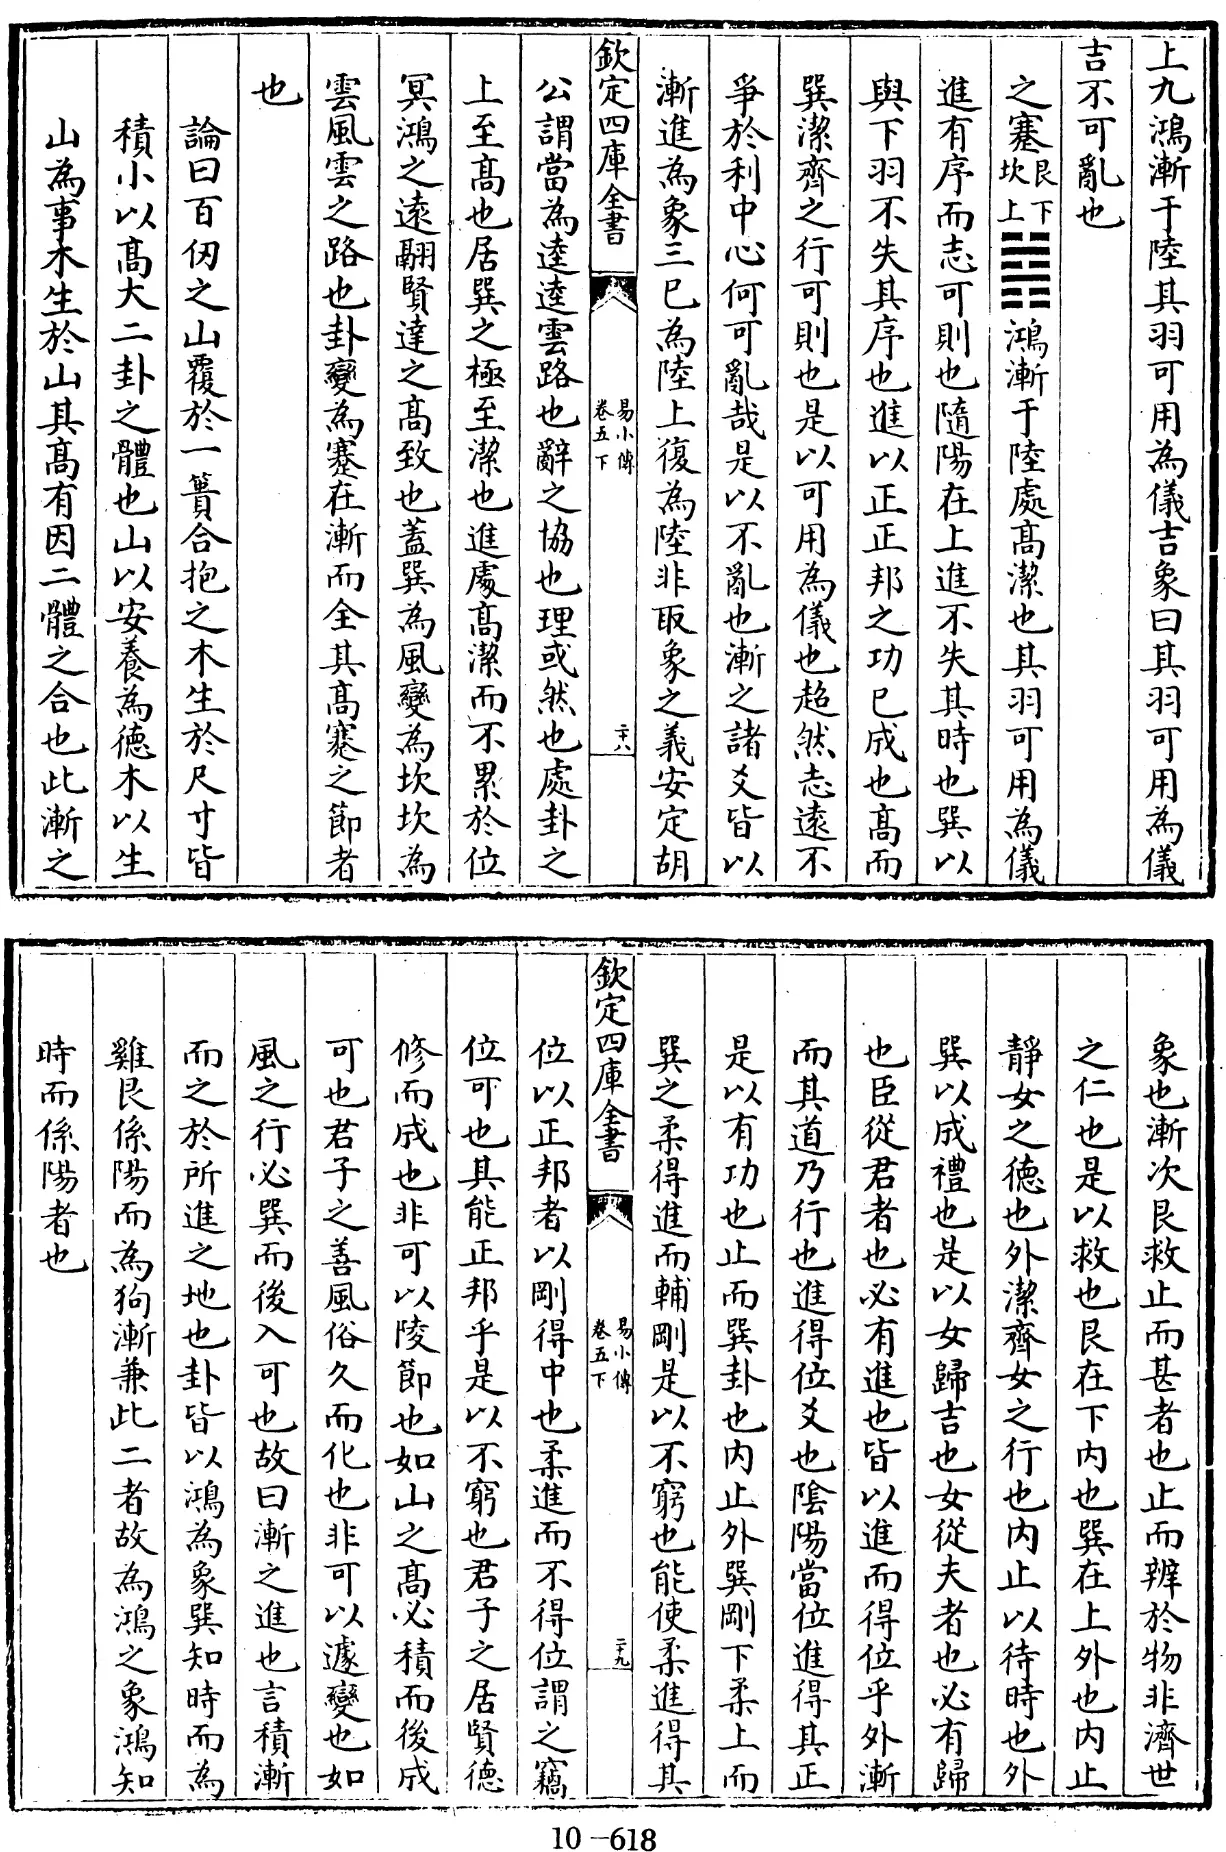 上九鴻漸于陸其羽可用為儀吉象曰其羽可用為儀
吉不可亂也
之蹇艮下坎上鴻漸于陸處高潔也其羽可用為儀
進有序而志可則也隨陽在上進不失其時也巽以
與下羽不失其序也進以正正邦之功已成也高而
巽潔齊之行可則也是以可用為儀也超然志遠不
爭於利中心何可亂哉是以不亂也漸之諸爻皆以
漸進為象三已為陸上復為陸非取象之義安定胡
欽定四庫全書
易小傳
卷五下
二十八
公謂當為逵逵雲路也辭之協也理或然也處卦之
上至高也居巽之極至潔也進處高潔而不累於位
冥鴻之遠翮賢達之高致也蓋巽為風變為坎坎為
雲風雲之路也卦變為蹇在漸而全其高蹇之節者
也
論曰百仞之山覆於一簣合抱之木生於尺寸皆
積小以高大二卦之體也山以安養為德木以生
山為事木生於山其高有因二體之合也此漸之
象也漸次艮救止而甚者也止而辨於物非濟世
之仁也是以救也艮在下內也巽在上外也內止
靜女之德也外潔齊女之行也內止以待時也外
巽以成禮也是以女歸吉也女從夫者也必有歸
也臣從君者也必有進也皆以進而得位乎外漸
而其道乃行也進得位爻也陰陽當位進得其正
是以有功也止而巽卦也內止外巽剛下柔上而
巽之柔得進而輔剛是以不窮也能使柔進得其
欽定四庫全書
易小傳
卷五下
二十九
位以正邦者以剛得中也柔進而不得位謂之竊
位可也其能正邦乎是以不窮也君子之居賢德
修而成也非可以陵節也如山之高必積而後成
可也君子之善風俗久而化也非可以遽變也如
風之行必巽而後入可也故曰漸之進也言積漸
而之於所進之地也卦皆以鴻為象巽知時而為
雞艮係陽而為狗漸兼此二者故為鴻之象鴻知
時而係陽者也
10-618